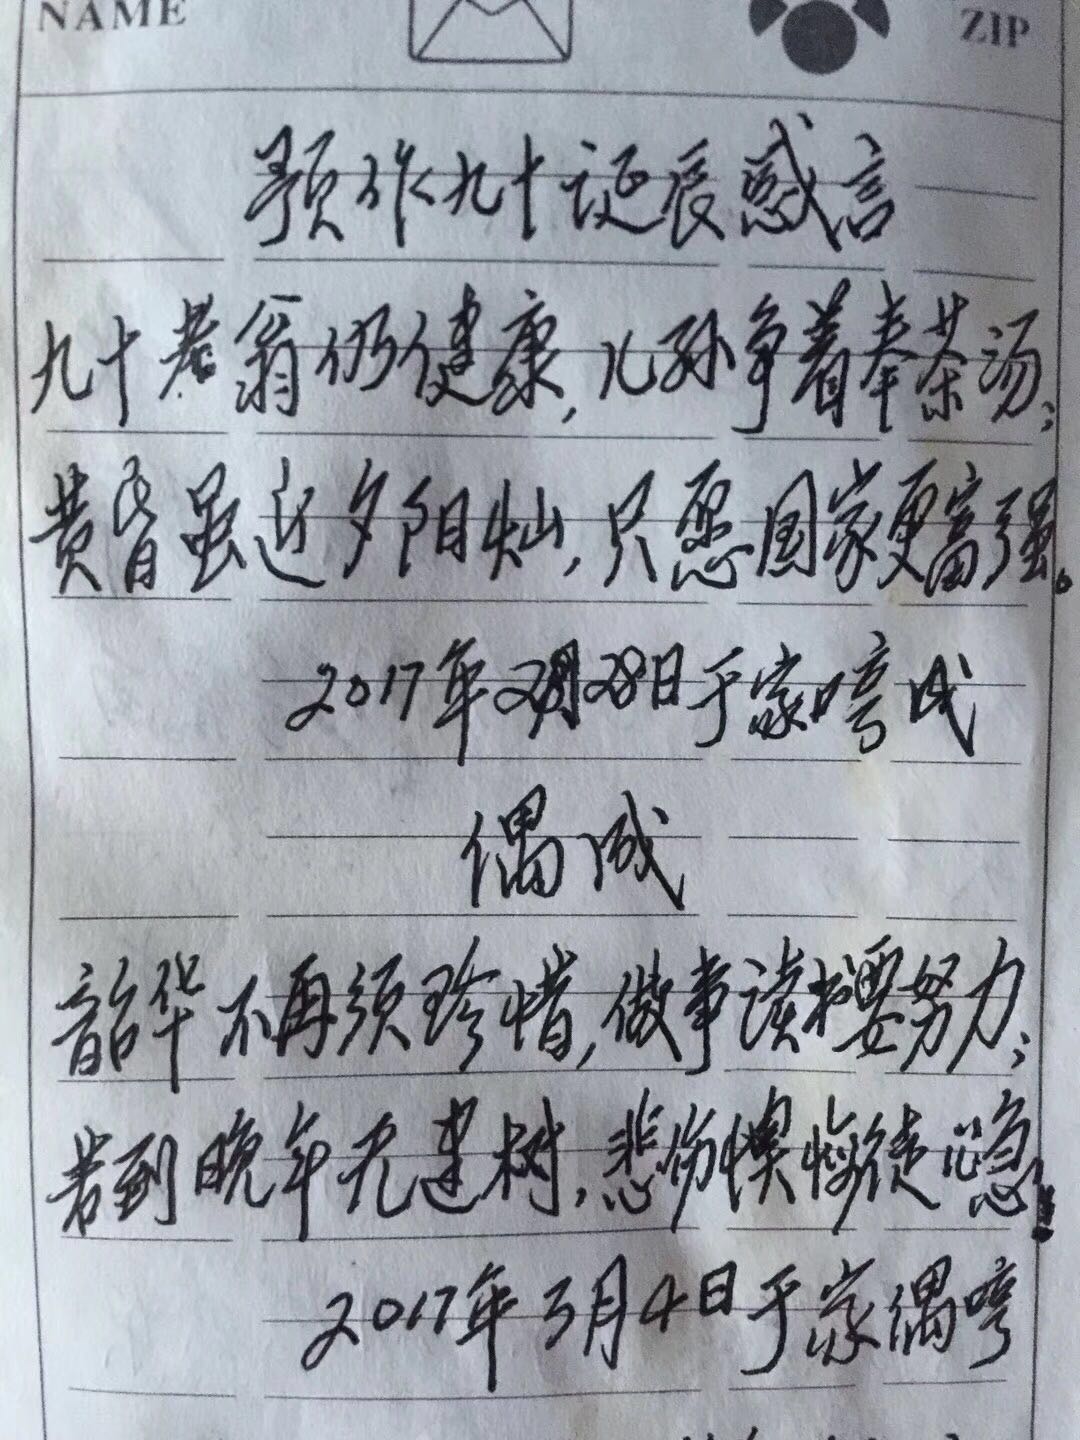 NAME ZIP
预作九十诞辰感言
九十老翁仍健康，儿孙争着奉茶汤；
黄昏虽近夕阳灿，只愿国家更富强。
2017年2月28日于家哼成
偶成
韶华不再须珍惜，做事读书要努力；
若到晚年无建树，悲伤懊悔徒心急
2017年3月4日于家偶哼